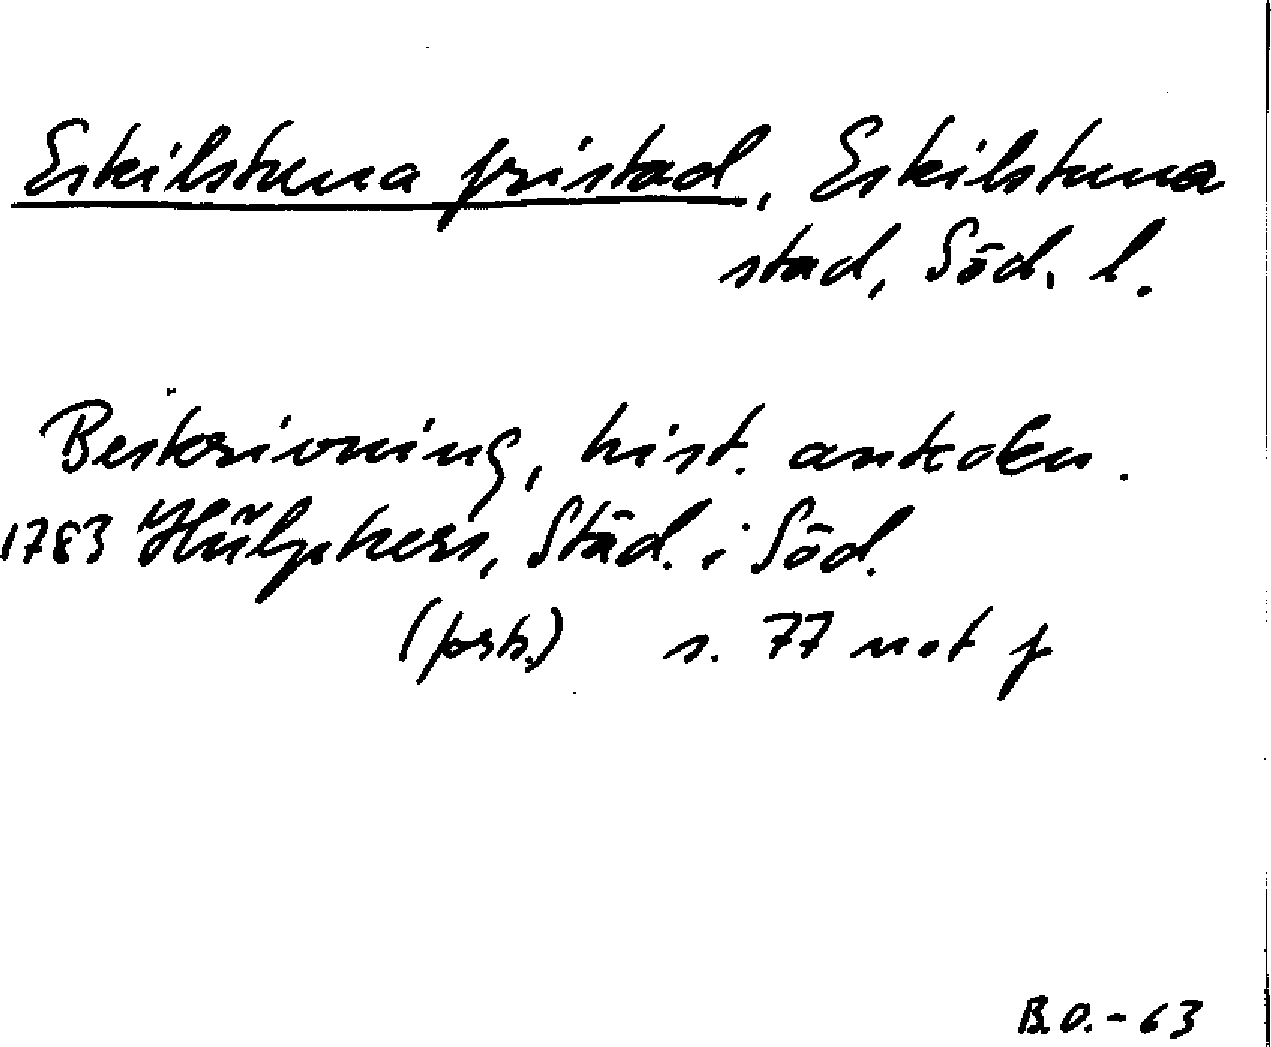 Eskilstuna fristad, Eskilstuna
stad, Söd. l.
Beskrivning, hist. anteckn.
1783 Hülphers, Städ. i Söd.
(forts.) s. 77 not f
B.O.-63